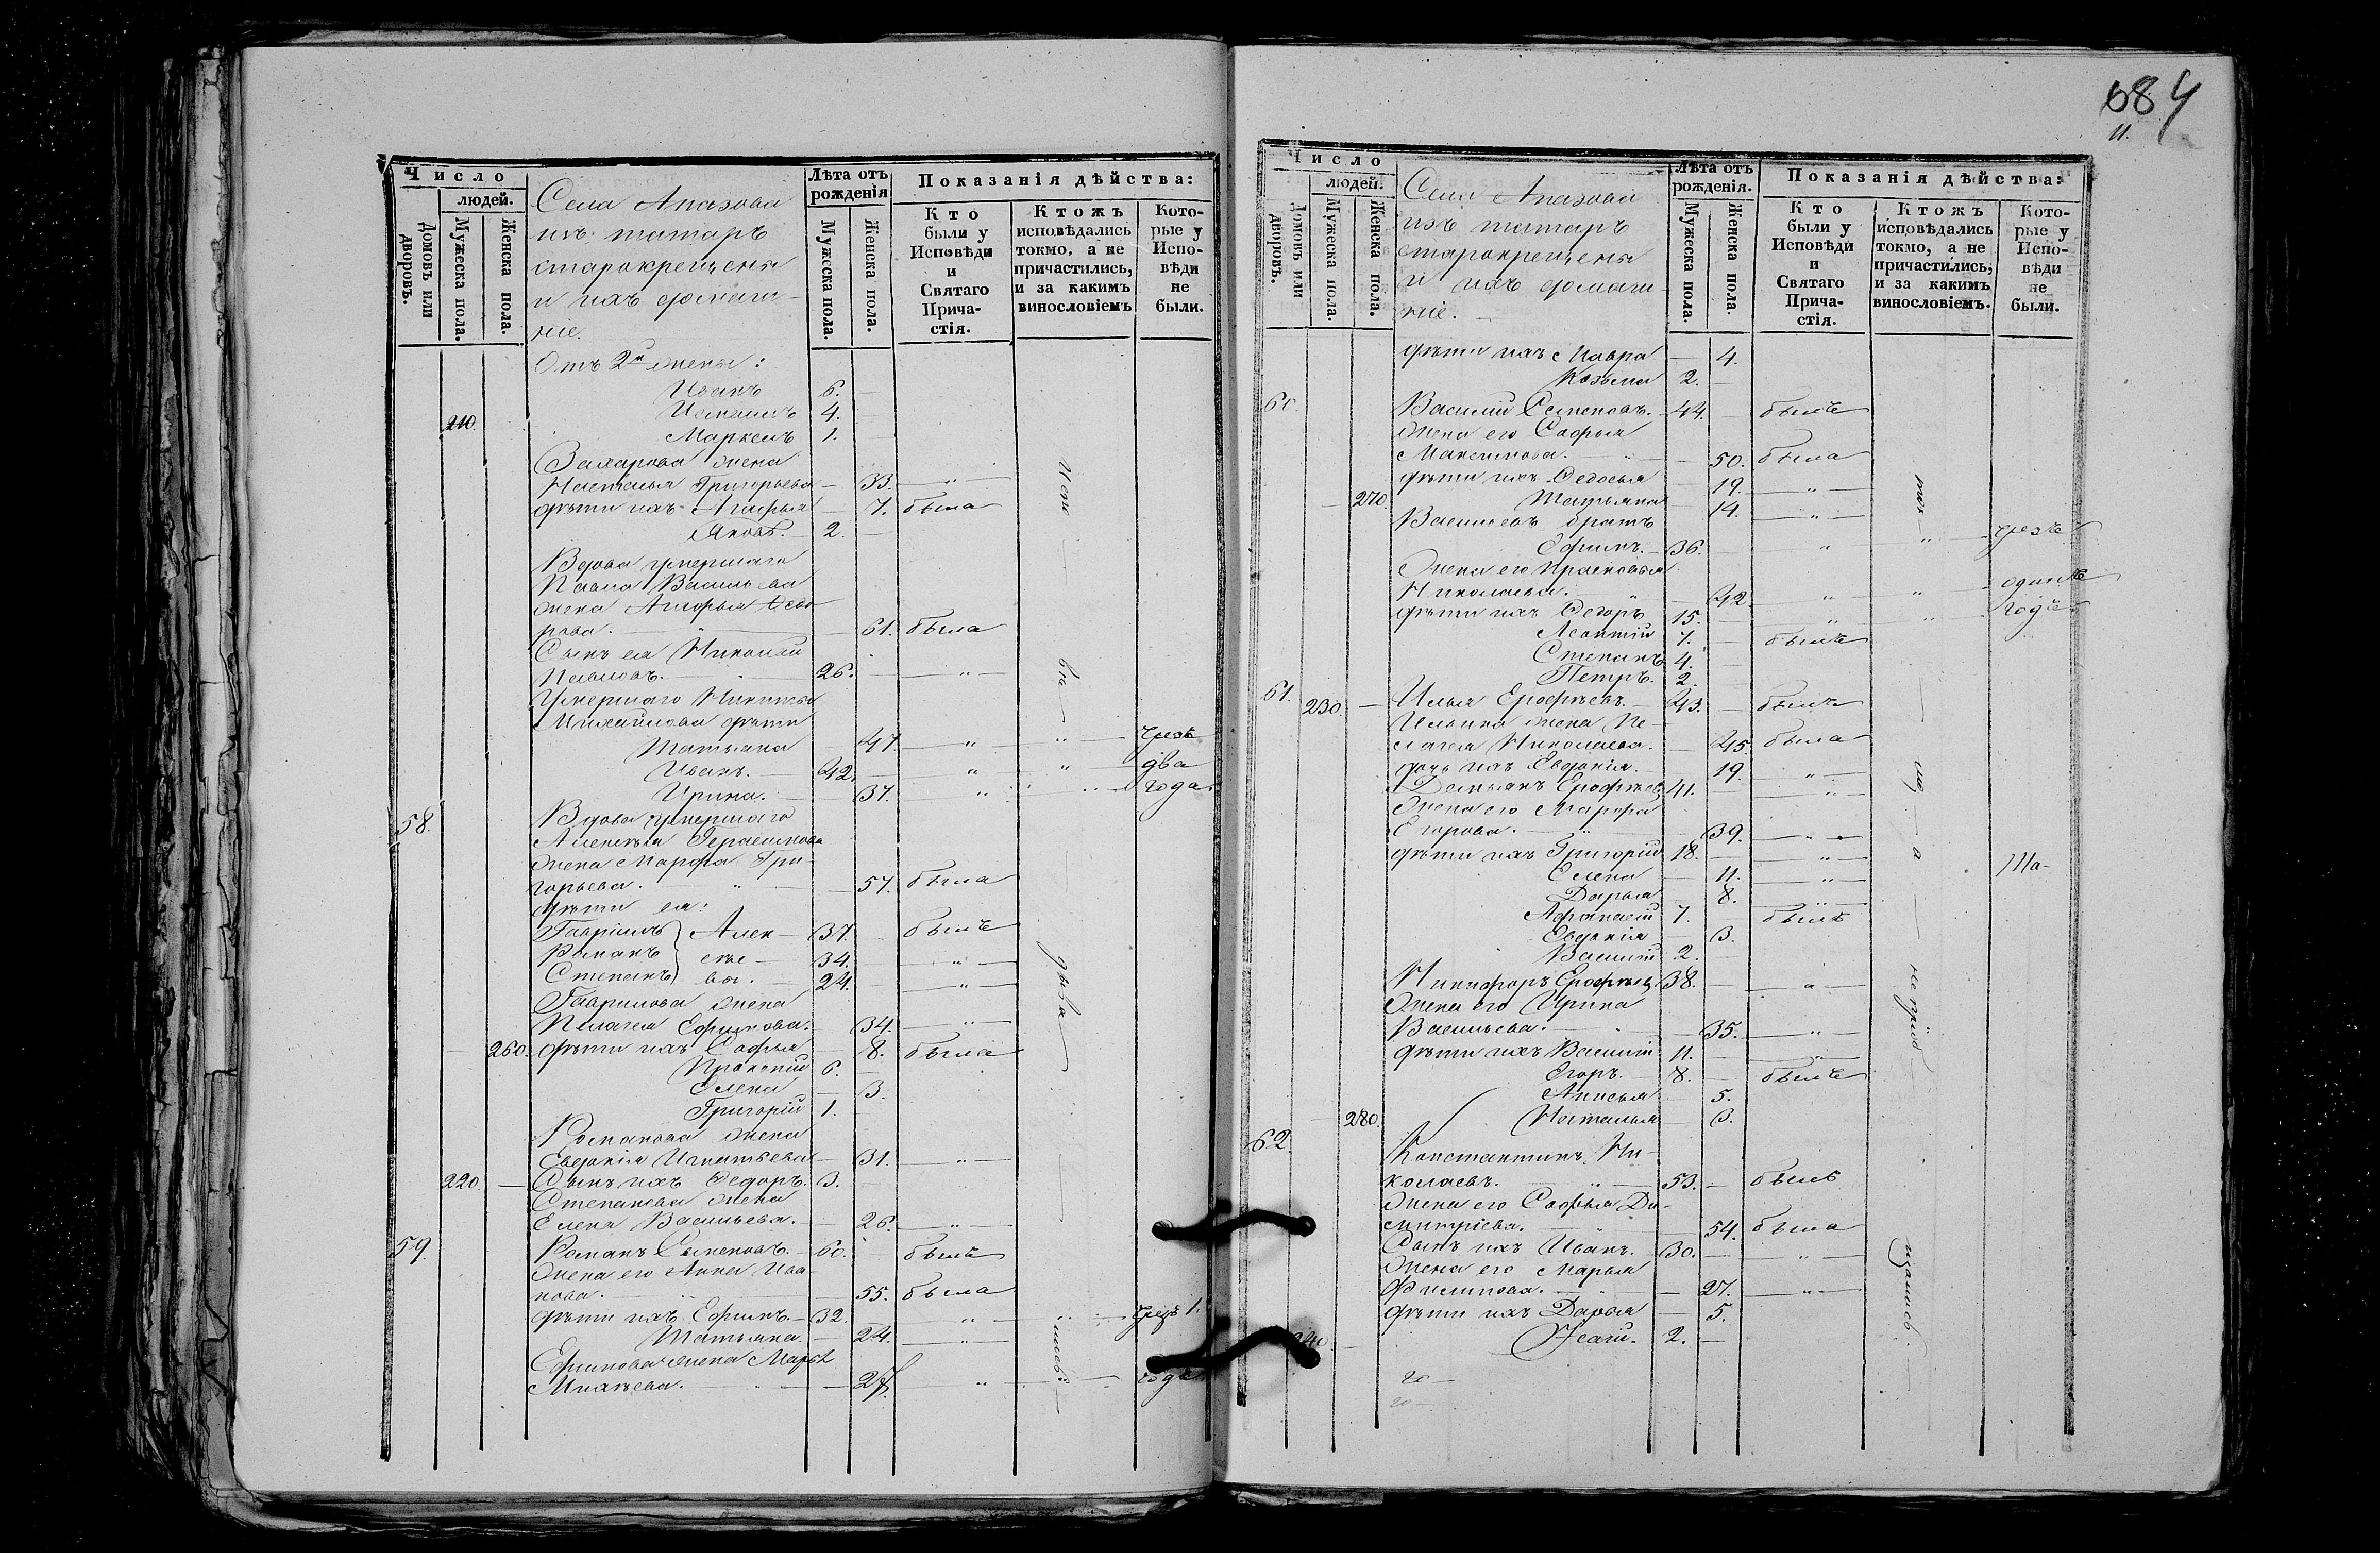 684
11.
Число
людей.
Домовъ или дворовъ.
Мужеска пола.
Женска пола.
Села Апазова
изъ татаръ
старокрещены
и ихъ домаш-
ніе.
Лѣта отъ рожденія
Мужеска пола.
Женска пола.
Показанія дѣйства:
Кто были у Исповѣди и Святаго Прича-стія.
Ктожъ исповѣдались токмо, а не причастились, и за какимъ винословіемъ
Кото-рые у Испо-вѣди не были.
Отъ 2й жены:
Иванъ 6.
210. 4.
Маркелъ 1.
Захарова жена
Наталья Григорьева 33. "
дѣти ихъ Агафья 7. была
Яковъ. 2.
Вдова умершаго
Павла Васильева
жена Агафья Ѳедо-
рова. 61. была
Сынъ ея Николай
Павловъ. 26. "
Умершаго Никиты
Михайлова дѣти
Татьяна 47. " " чрезъ
Иванъ. 42. " " два
Ирина. 37. " " года
58. Вдова умершаго
Алексѣя Герасимова
жена Марфа Гри-
горьева. " 57. была
дѣти ея:
Гаврiилъ } Алек- 37. былъ
Романъ } сѣе- 34. "
Степанъ } вы. 24. "
Гаврилова жена
Пелагея Ефимова. 34. "
260. дѣти ихъ Софья 8. была
6.
Елена 3.
Григорій 1.
Романова жена
Евдокія Игнатьева 31. "
220. Сынъ ихъ Ѳедоръ. 3.
Степанова жена
Елена Васильева. 26. "
59. Романъ Семеновъ. 60. былъ
жена его Анна Ива-
нова. 55. была
дѣти ихъ Ефимъ. 32. " " чрезъ 1.
Татьяна. 24. "
Ефимова жена Марья
Михѣева. 27. " годъ
Число
людей.
Домовъ или дворовъ.
Мужеска пола.
Женска пола.
Села Апазова
изъ татаръ
старокрещены
и ихъ домаш-
ніе.
Лѣта отъ рожденія.
Мужеска пола.
Женска пола.
Показанія дѣйства:
Кто были у Исповѣди и Святаго Прича-стія.
Ктожъ исповѣдались токмо, а не причастились, и за какимъ винословіемъ.
Кото-рые у Испо-вѣди не были.
дѣти ихъ Мавра 4.
Козьма 2.
60. Василій Семеновъ. 44. былъ
жена его Софья
Максимова. 50. была
дѣти ихъ Ѳедосья 19. "
270. Татьяна 14. "
Васильевъ братъ
Ефимъ. 36. " " чрезъ
жена его Прасковья
Николаева. " 42. " " одинъ
дѣти ихъ Ѳедоръ 15. " " годъ
Леонтій 7. былъ
Степанъ 4.
Петръ. 2.
61. 230. Илья Ерофѣевъ. 43. былъ
Ильина жена Пе-
лагея Николаева. 45. была
дочь ихъ Евдокія. 19. "
Демьянъ Ерофѣевъ 41. "
жена его Марфа
Егорова. " 39. "
дѣти ихъ Григорій 18. "
Елена 11. "
Дарья 8. "
Афанасій 7. былъ
Евдокія 3.
Василій 2.
Никифоръ Ерофѣевъ 38. "
жена его Ирина
Васильева. 35. "
дѣти ихъ Василій 11. "
Егоръ. 8. былъ
Анисья 5.
280. Наталья 3.
62. Константинъ Ни-
колаевъ. " 53. былъ
жена его Софья Ди-
митріева. 54. была
Сынъ ихъ Иванъ. 30. "
жена его Марья
Филипова. " 27. "
дѣти ихъ Дарья 5.
240. Исай. 2.
20
20